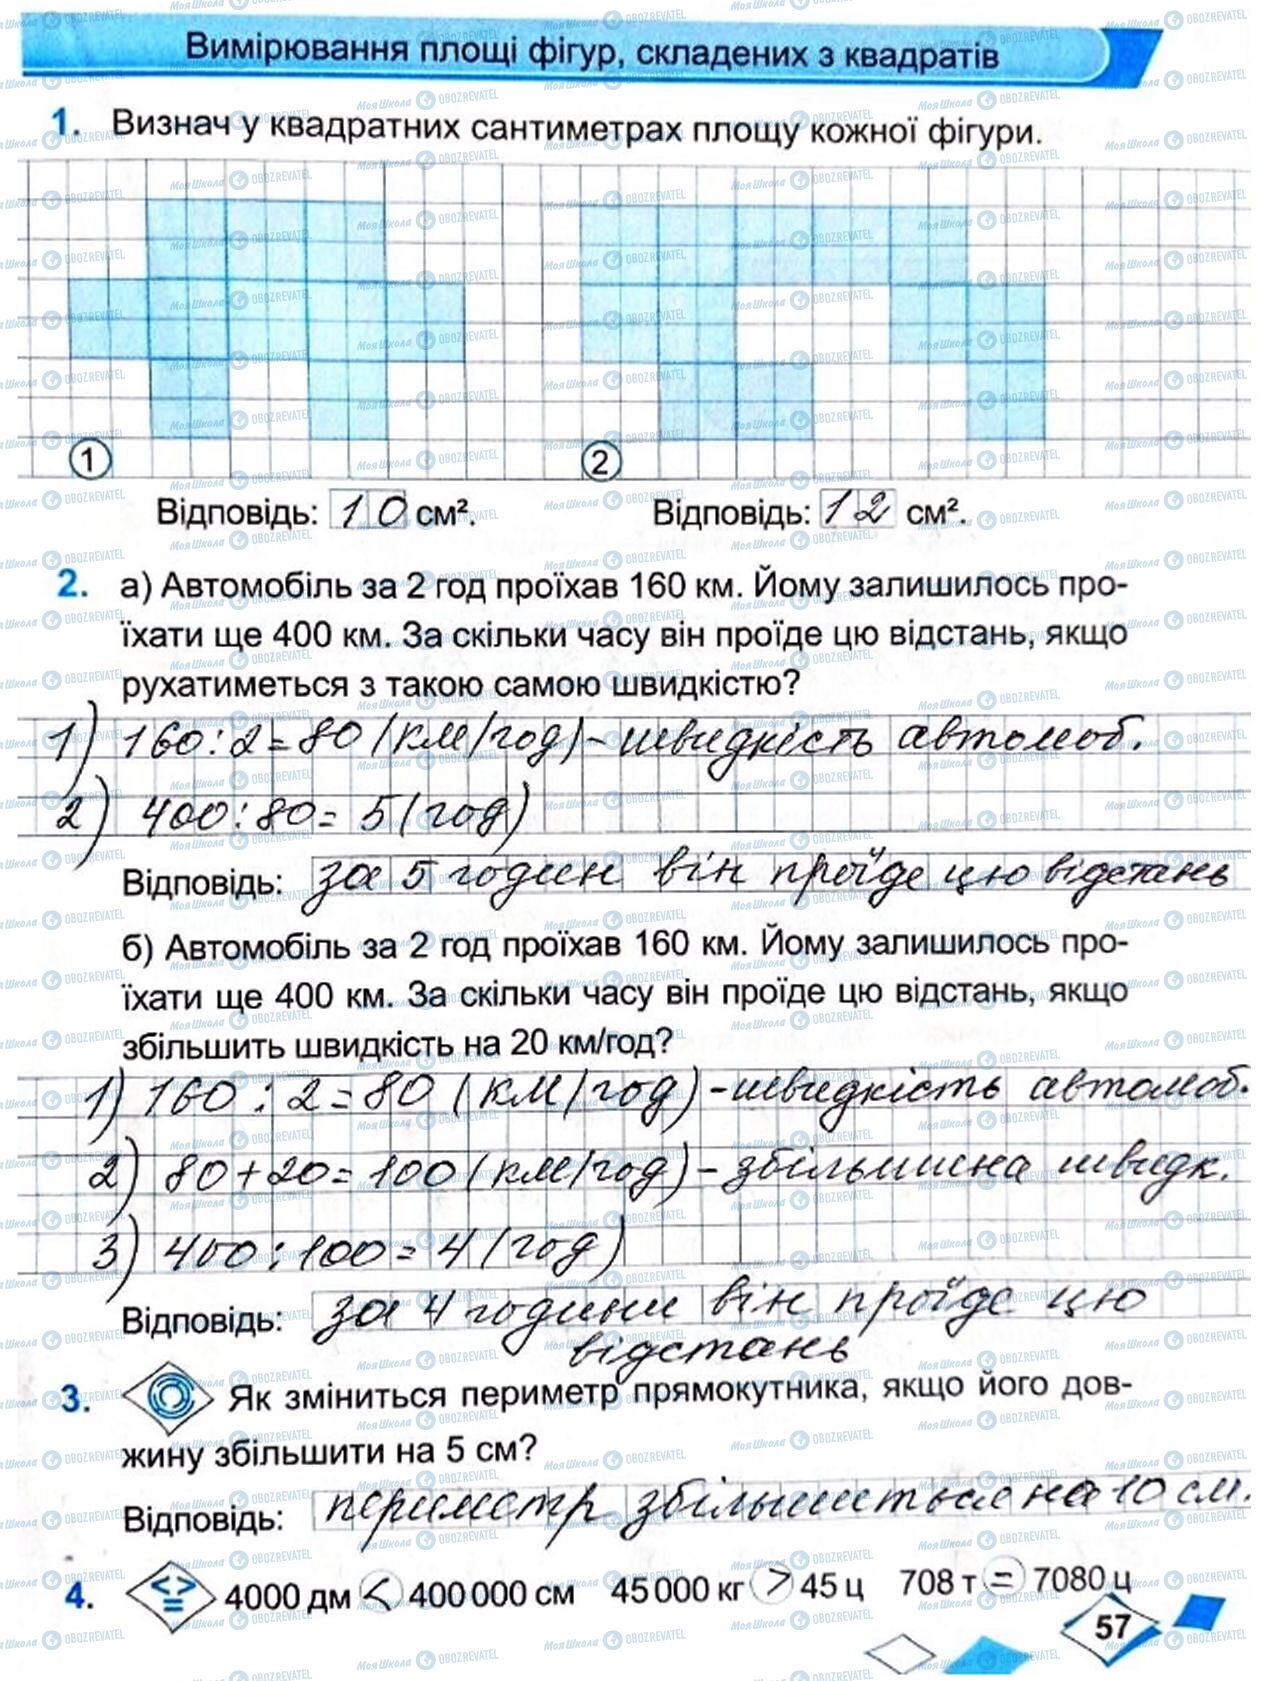 Вимірювання площі фігур, складених з квадратів
1. Визнач у квадратних сантиметрах площу кожної фігури.
1 2
Відповідь: 10 см². Відповідь: 12 см².
2. а) Автомобіль за 2 год проїхав 160 км. Йому залишилось про-
їхати ще 400 км. За скільки часу він проїде цю відстань, якщо
рухатиметься з такою самою швидкістю?
1) 160:2=80 (км/год)-швидкість автомоб.
2) 400:80=5 (год)
Відповідь: за 5 годин він проїде цю відстань
б) Автомобіль за 2 год проїхав 160 км. Йому залишилось про-
їхати ще 400 км. За скільки часу він проїде цю відстань, якщо
збільшить швидкість на 20 км/год?
1) 160:2=80 (км/год)-швидкість автомоб.
2) 80+20=100 (км/год)-збільшена швидк.
3) 400:100=4 (год)
Відповідь: за 4 години він проїде цю
відстань
3. Як зміниться периметр прямокутника, якщо його дов-
жину збільшити на 5 см?
Відповідь: периметр збільшиться на 10 см.
4. < > = 4000 дм < 400 000 см 45 000 кг > 45 ц 708 т = 7080 ц
57
МояШкола OBOZREVATEL